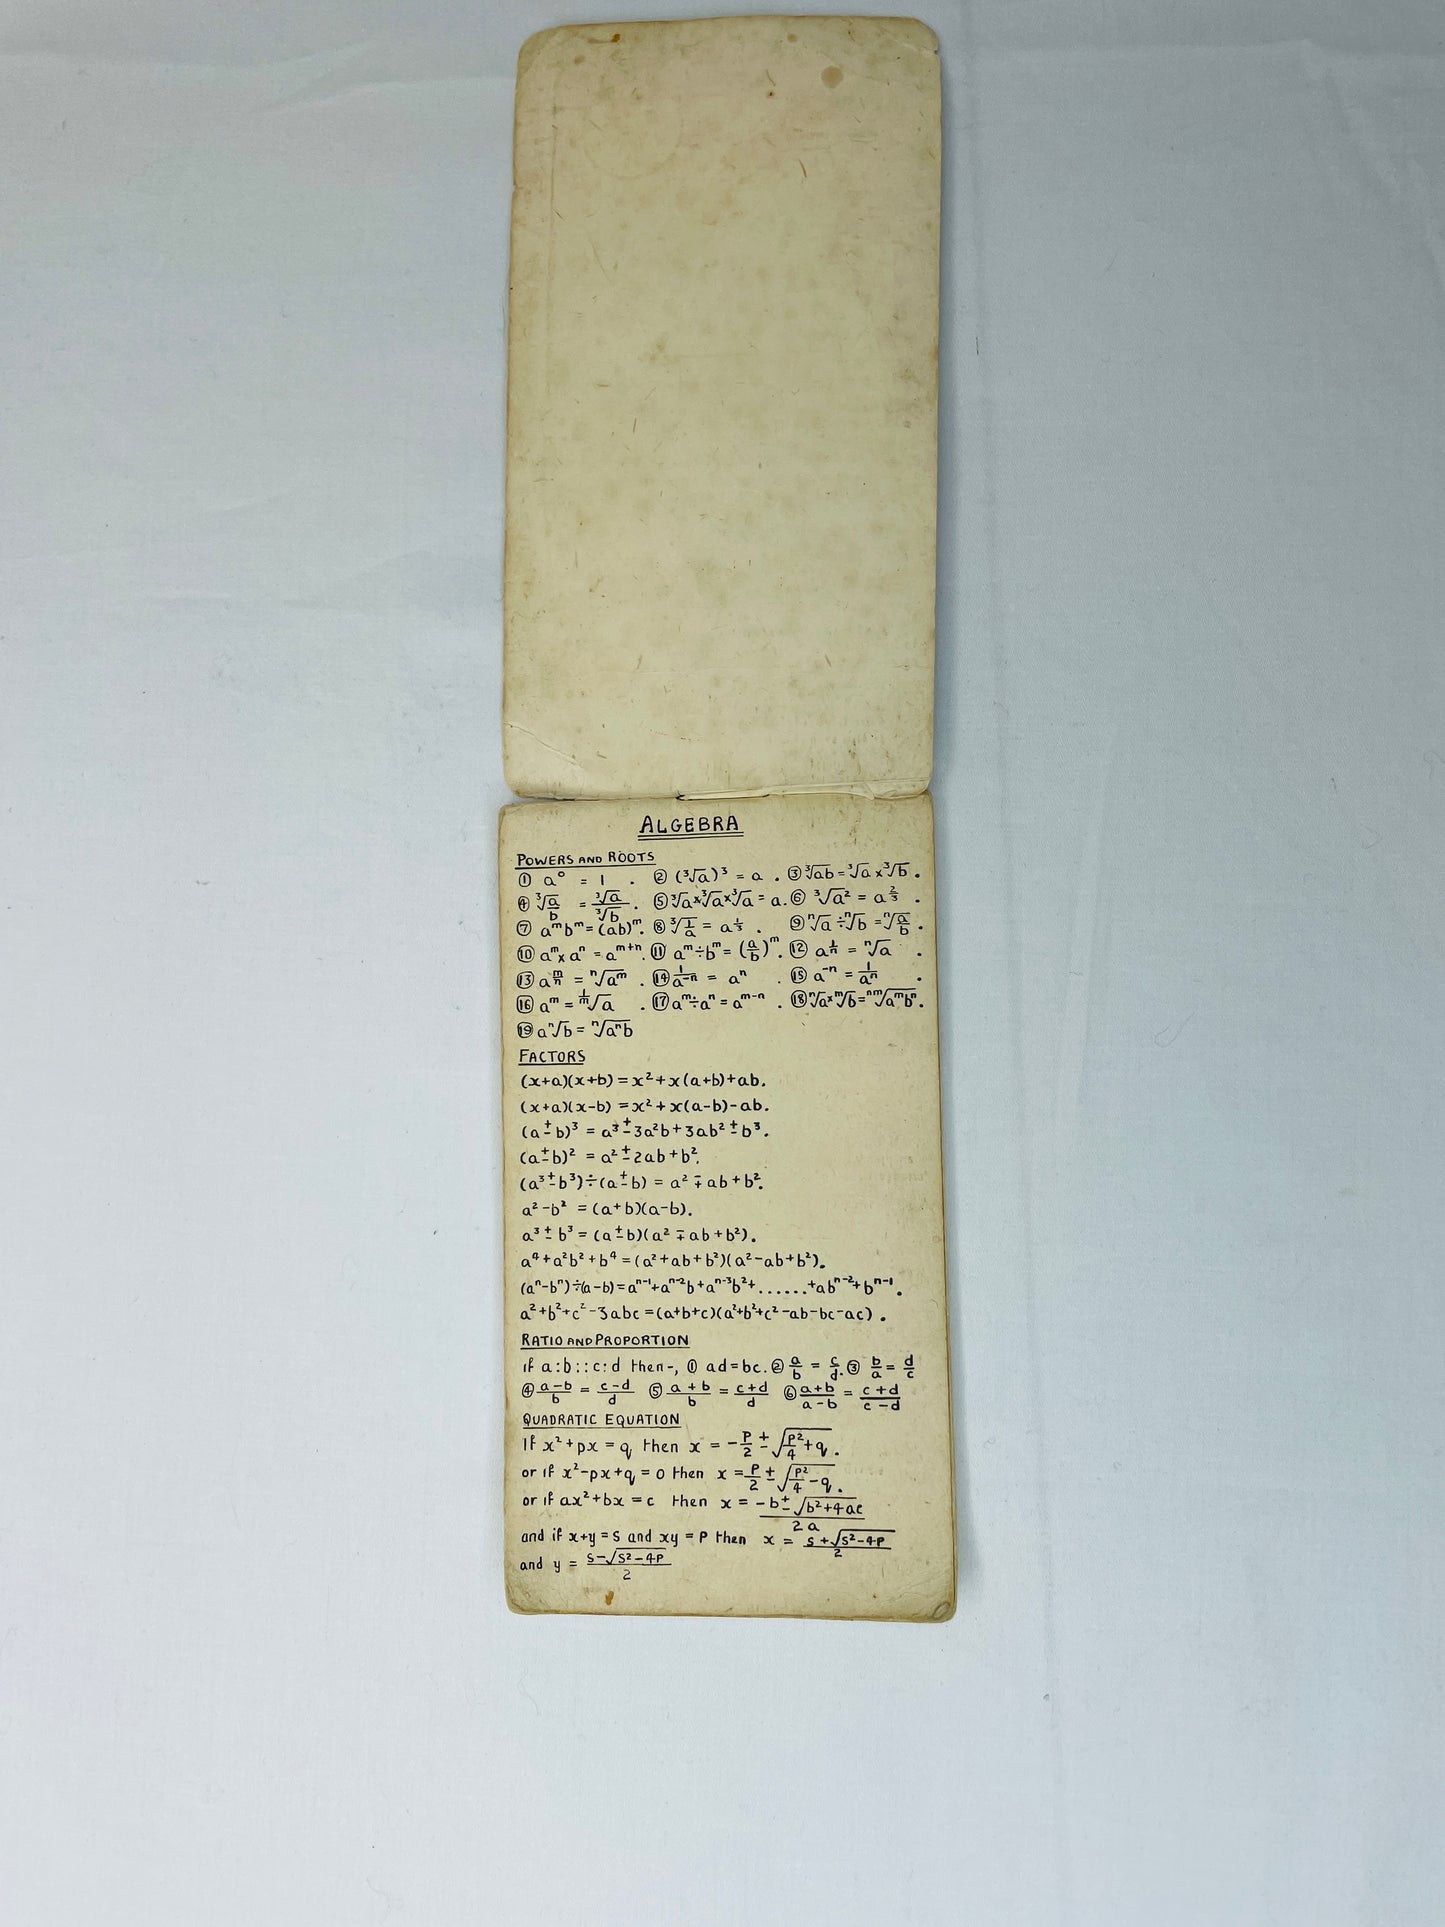 ALGEBRA
POWERS AND ROOTS
① a⁰ = 1 . ② (∛a)³ = a . ③ ∛ab = ∛a x ∛b .
④ ∛(a/b) = ∛a/∛b . ⑤ ∛a x ∛a x ∛a = a . ⑥ ∛a² = a^(2/3) .
⑦ aᵐbᵐ = (ab)ᵐ. ⑧ ∛(1/a) = a^(1/3) . ⑨ ⁿ√a ÷ ⁿ√b = ⁿ√(a/b) .
⑩ aᵐ x aⁿ = aᵐ⁺ⁿ. ⑪ aᵐ ÷ bᵐ = (a/b)ᵐ. ⑫ a^(1/n) = ⁿ√a .
⑬ a^(m/n) = ⁿ√aᵐ . ⑭ 1/a⁻ⁿ = aⁿ . ⑮ a⁻ⁿ = 1/aⁿ .
⑯ aᵐ = ^(1/m)√a . ⑰ aᵐ ÷ aⁿ = aᵐ⁻ⁿ . ⑱ ⁿ√a x ᵐ√b = ⁿᵐ√aᵐbⁿ.
⑲ a ⁿ√b = ⁿ√aⁿb
FACTORS
(x+a)(x+b) = x²+x(a+b)+ab.
(x+a)(x-b) = x²+x(a-b)-ab.
(a±b)³ = a³±3a²b+3ab²±b³.
(a±b)² = a²±2ab+b².
(a³±b³)÷(a±b) = a²∓ab+b².
a²-b² = (a+b)(a-b).
a³±b³ = (a±b)(a²∓ab+b²).
a⁴+a²b²+b⁴ = (a²+ab+b²)(a²-ab+b²).
(aⁿ-bⁿ)÷(a-b) = aⁿ⁻¹+aⁿ⁻²b+aⁿ⁻³b²+......+abⁿ⁻²+bⁿ⁻¹.
a²+b²+c²-3abc = (a+b+c)(a²+b²+c²-ab-bc-ac).
RATIO AND PROPORTION
if a:b::c:d then-, ① ad=bc. ② a/b = c/d. ③ b/a = d/c
④ (a-b)/b = (c-d)/d ⑤ (a+b)/b = (c+d)/d ⑥ (a+b)/(a-b) = (c+d)/(c-d)
QUADRATIC EQUATION
If x²+px = q then x = -p/2 ± √(p²/4+q).
or if x²-px+q = 0 then x = p/2 ± √(p²/4-q).
or if ax²+bx = c then x = (-b±√(b²+4ac))/2a
and if x+y = S and xy = P then x = (s+√(s²-4P))/2
and y = (s-√(s²-4P))/2